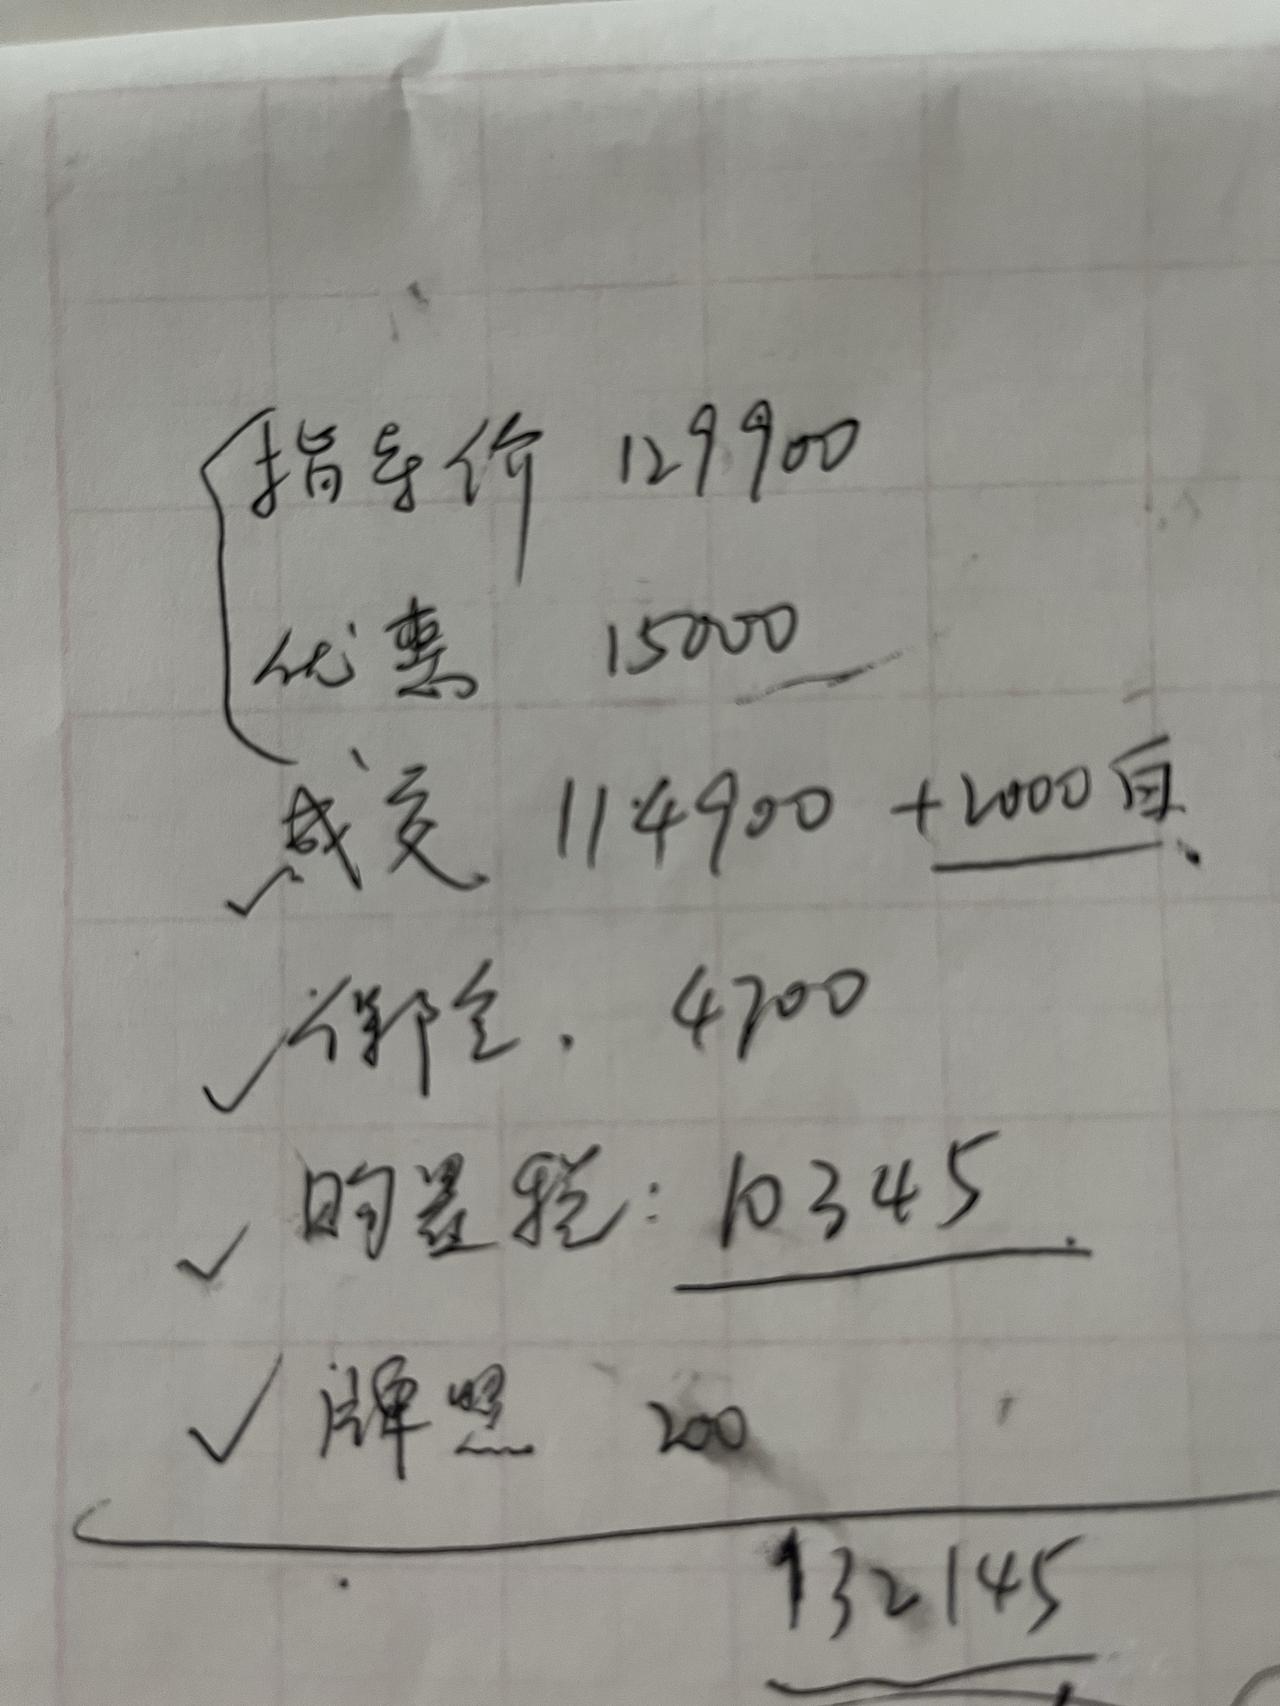 指导价 129900
优惠 15000
成交 114900 +2000白
保全. 4700
购置税: 10345.
牌照 200
132145